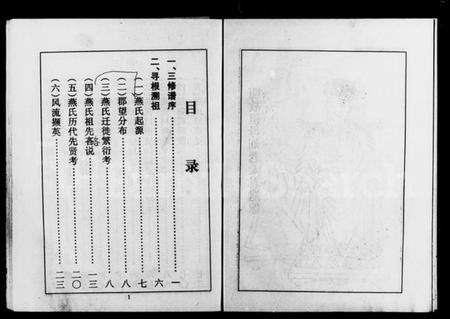 目录
一、三修谱序……一
二、寻根溯祖……六
（一）燕氏起源……七
（二）郡望分布……八
（三）燕氏迁徙繁衍考……八
（四）燕氏祖先客说……一三
（五）燕氏历代先贤考……二〇
（六）风流撷英……二三
1
FamilySearch